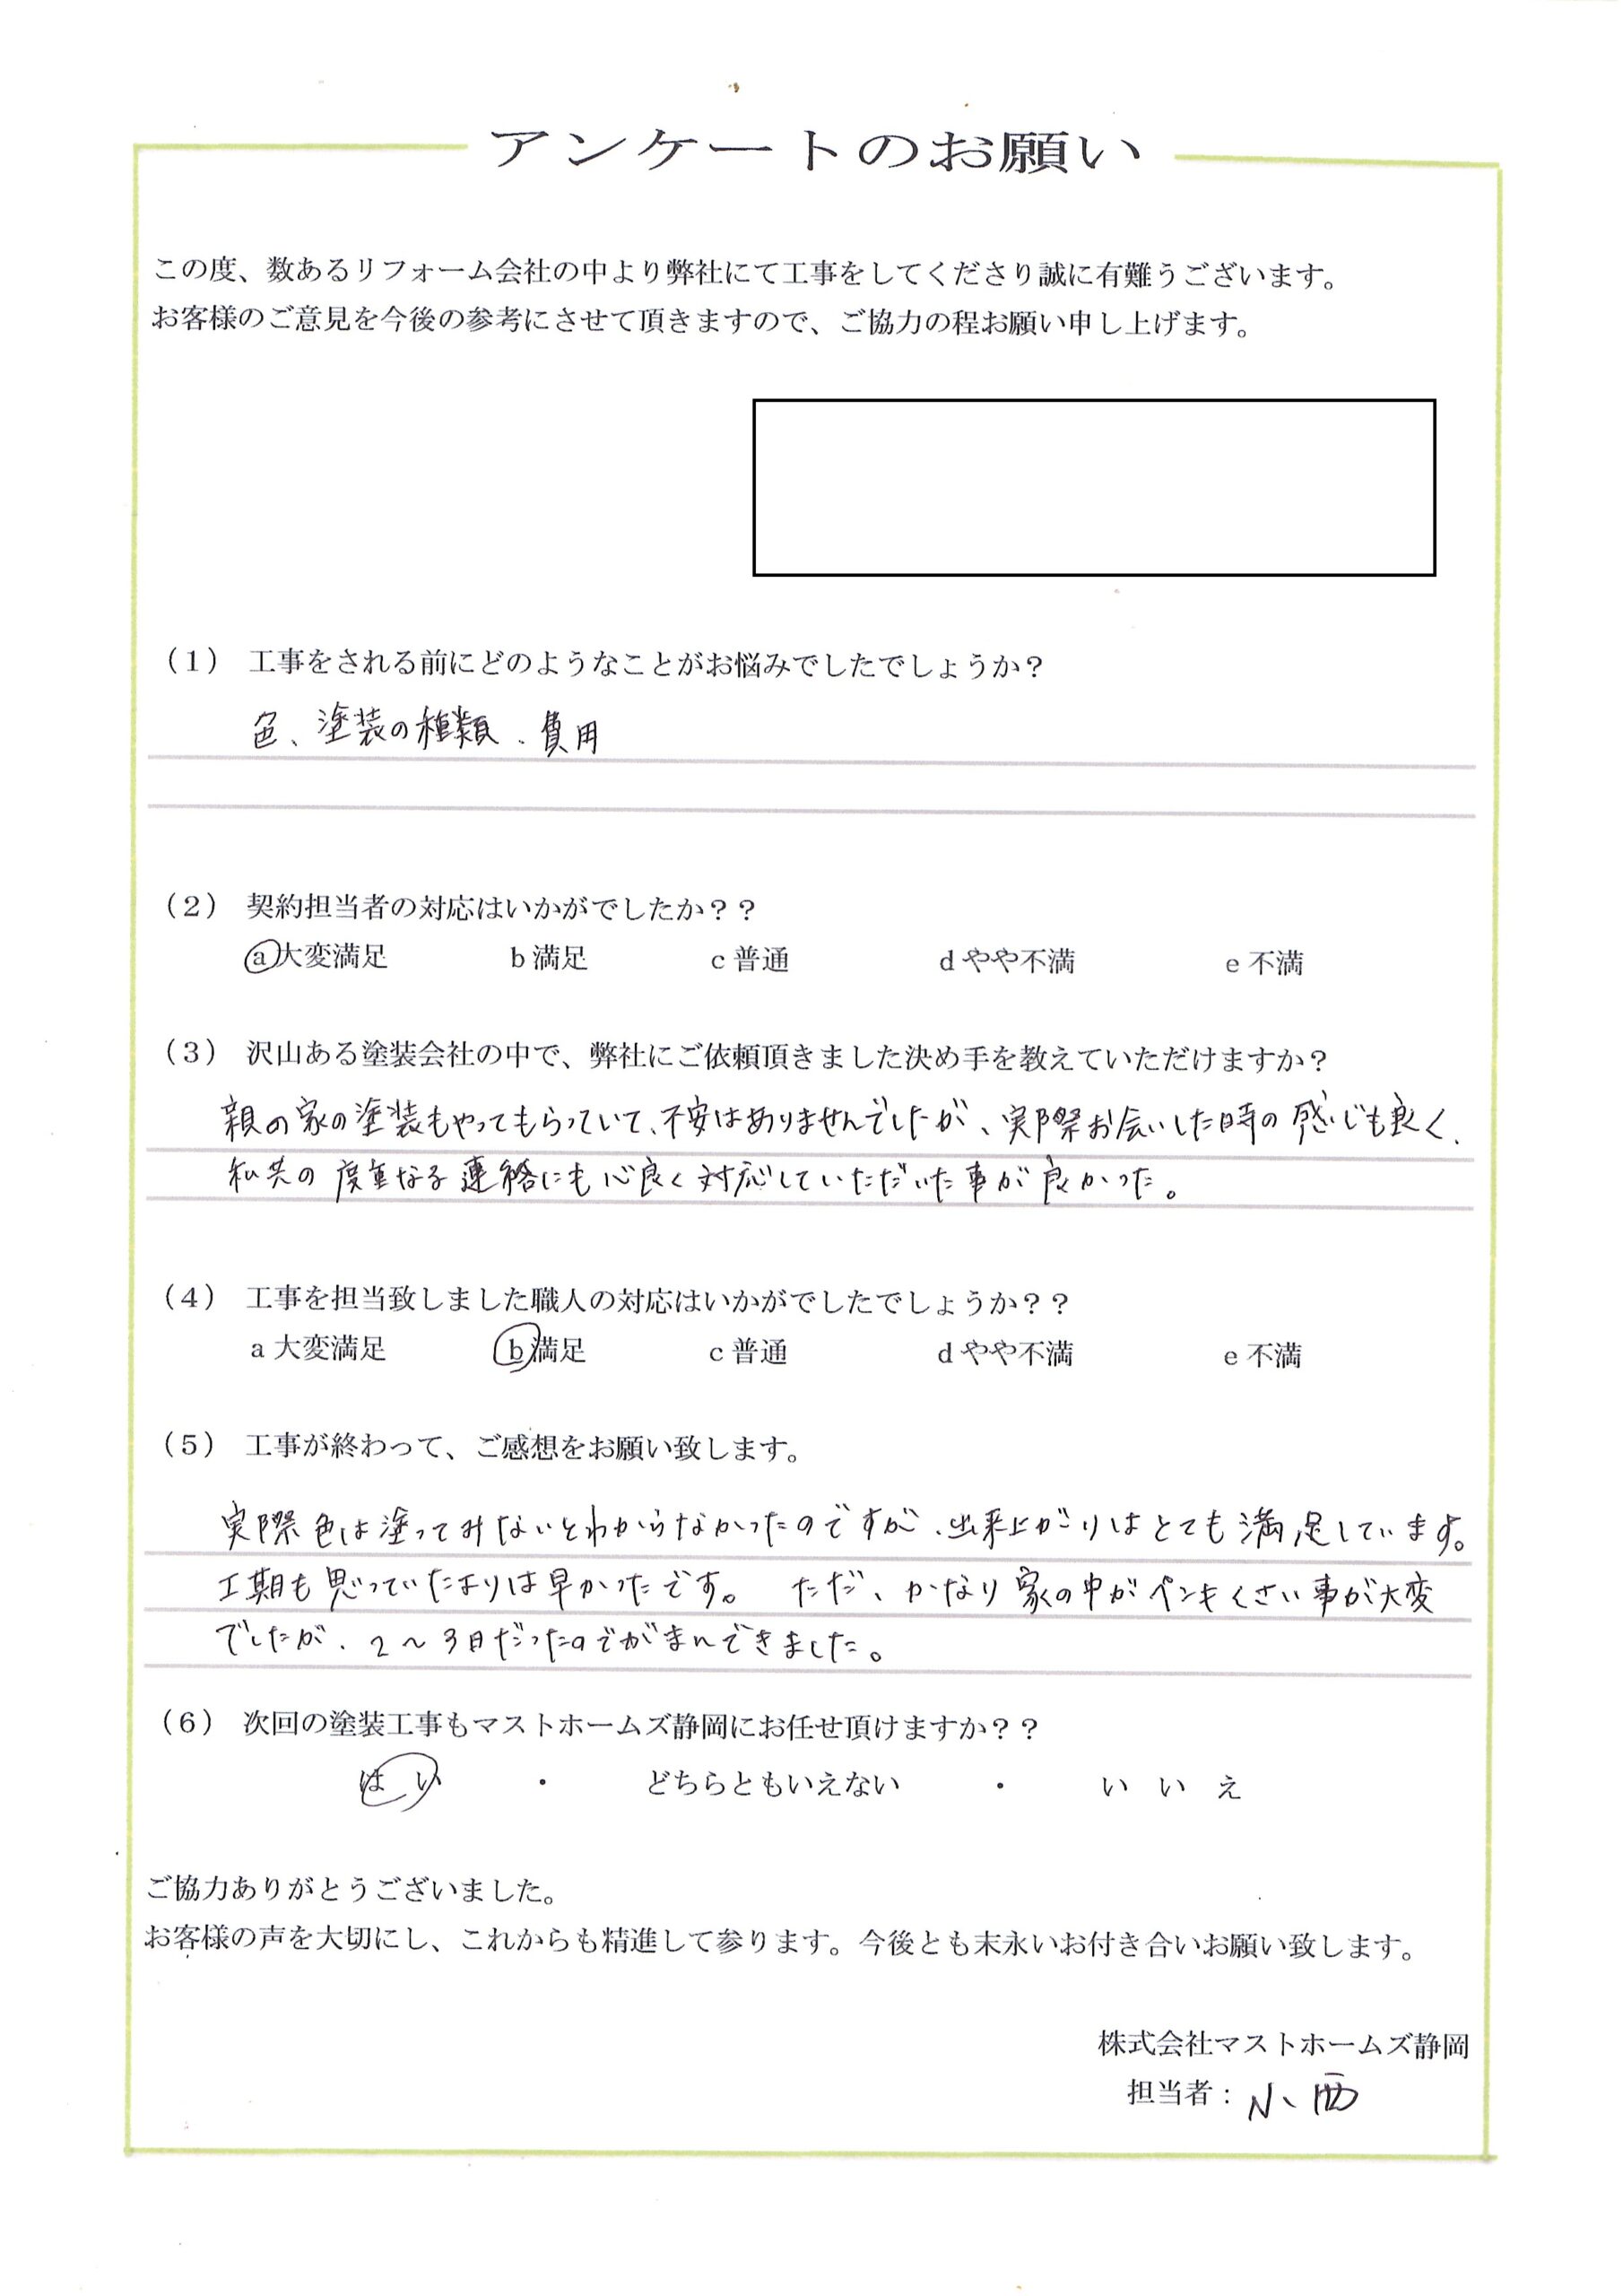 アンケートのお願い
この度、数あるリフォーム会社の中より弊社にて工事をしてくださり誠に有難うございます。
お客様のご意見を今後の参考にさせて頂きますので、ご協力の程お願い申し上げます。
（1） 工事をされる前にどのようなことがお悩みでしたでしょうか？
色、塗装の種類、費用
（2） 契約担当者の対応はいかがでしたか？？
a 大変満足 b 満足 c 普通 d やや不満 e 不満
（3） 沢山ある塗装会社の中で、弊社にご依頼頂きました決め手を教えていただけますか？
親の家の塗装もやってもらっていて、不安はありませんでしたが、実際お会いした時の感じも良く、
私共の度重なる連絡にも心良く対応していただいた事が良かった。
（4） 工事を担当致しました職人の対応はいかがでしたでしょうか？？
a 大変満足 b 満足 c 普通 d やや不満 e 不満
（5） 工事が終わって、ご感想をお願い致します。
実際色は塗ってみないとわからなかったのですが、出来上がりはとても満足しています。
工期も思っていたよりは早かったです。 ただ、かなり家の中がペンキくさい事が大変
でしたが、2〜3日だったのでがまんできました。
（6） 次回の塗装工事もマストホームズ静岡にお任せ頂けますか？？
はい ・ どちらともいえない ・ いいえ
ご協力ありがとうございました。
お客様の声を大切にし、これからも精進して参ります。今後とも末永いお付き合いお願い致します。
株式会社マストホームズ静岡
担当者：小西